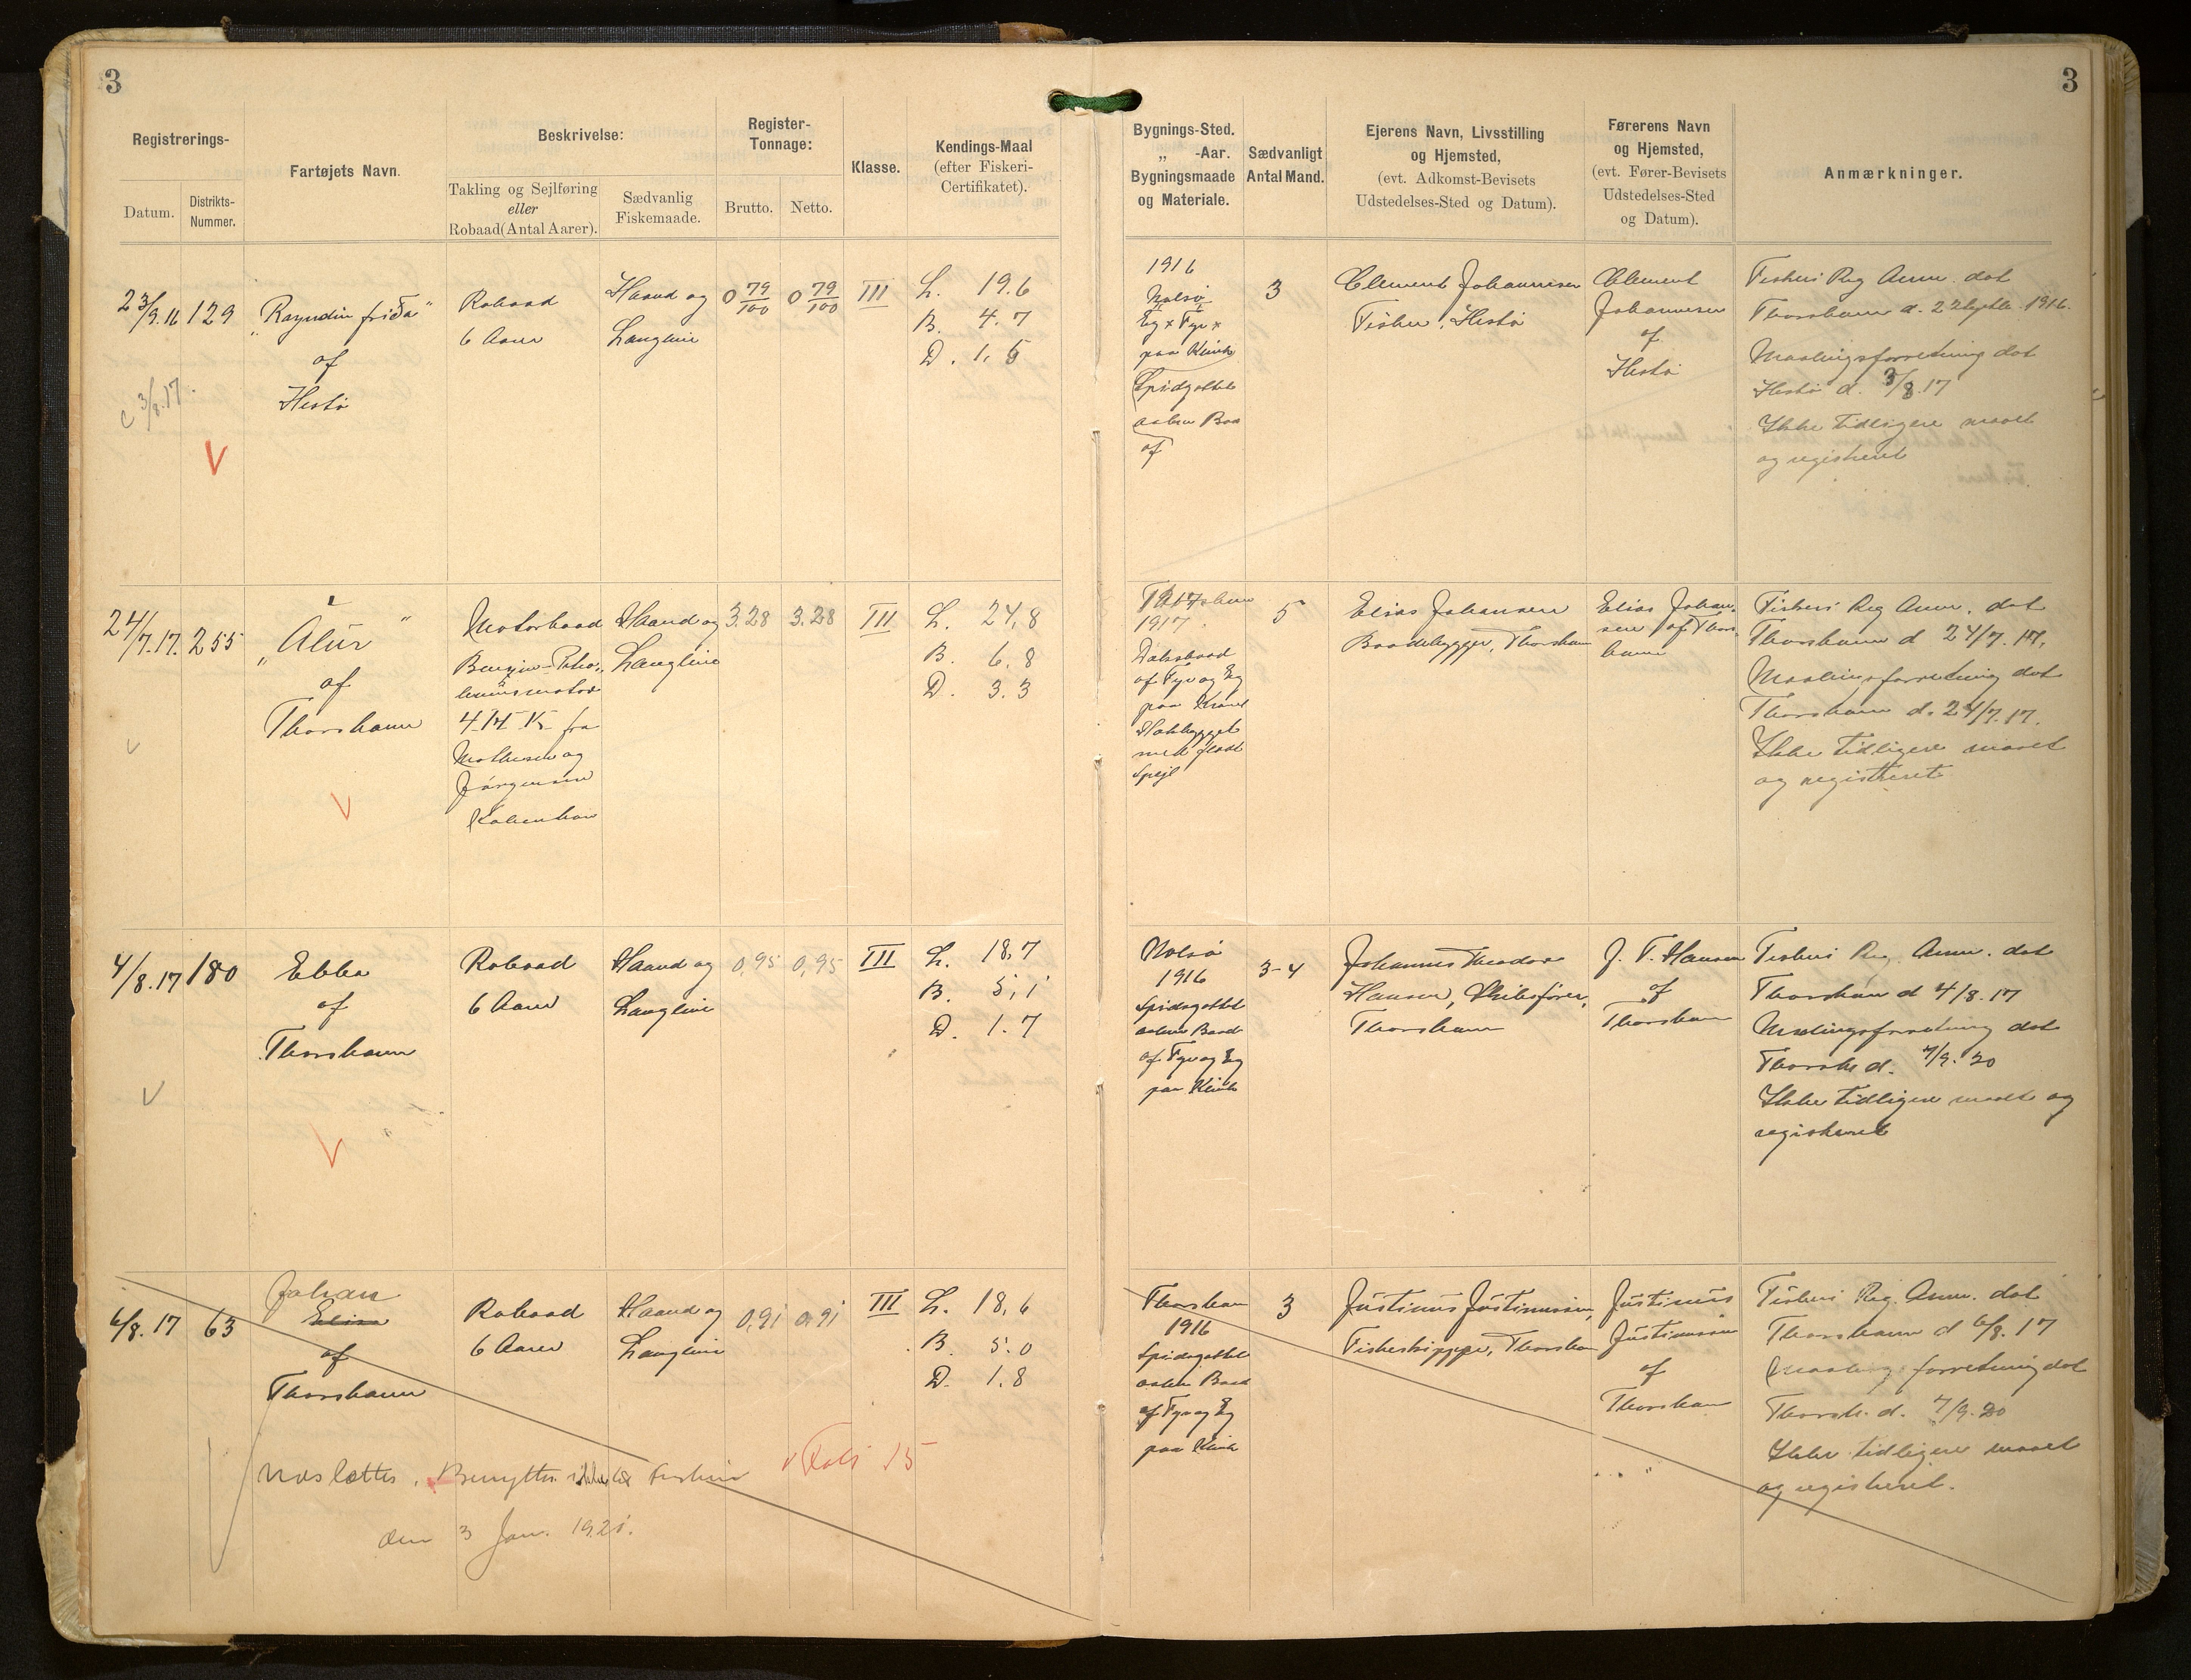 3
3
Registrerings-
Datum.
Distrikts-
Nummer.
Fartøjets Navn.
Beskrivelse:
Takling og Sejlføring
eller
Robaad(Antal Aarer).
Sædvanlig
Fiskemaade.
Register-
Tonnage:
Brutto.
Netto.
Klasse.
Kendings-Maal
(efter Fiskeri-
Certifikatet).
Bygnings-Sted.
„ -Aar.
Bygningsmaade
og Materiale.
Sædvanligt
Antal Mand.
Ejerens Navn, Livsstilling
og Hjemsted,
(evt. Adkomst-Bevisets
Udstedelses-Sted og Datum).
Førerens Navn
og Hjemsted,
(evt. Fører-Bevisets
Udstedelses-Sted
og Datum).
Anmærkninger.
23/9.16
3/8.17.
129
„Rayndin friða“
af
Hestø
Robaad
6 Aarer
Haand og
Langline
0 79/100
0 79/100
III
L. 19.6
B. 4.7
D. 1.5
1916
Nolsø
Eg x Fyr x
paa Klink
Spidsgattet
aaben Baad
af
3
Clement Johannesen
Fisker, Hestø
Clement
Johannesen
af
Hestø
Fiskeri Reg Anm. dat
Thorshavn d. 22 Septbr. 1916.
Maalingsforretning dat
Hestø d. 3/8.17
Ikke tidligere maalt
og registreret
24/7.17.
255
„Alur“
af
Thorshavn
Motorbaad
Benzin-Petro-
leumsmotor
4 H K fra
Mathesen og
Jørgensen
København
Haand og
Langline
3.28
3.28
III
L. 24,8
B. 6.8
D. 3.3
Thorshavn
1917.
Dæksbaad
af Fyr og Eg
paa Kravel
med fladt
Spejl
5
Elias Johansen
Baadebygger, Thorshavn
Elias Johan-
sen af Thors-
havn
Fiskeri Reg Anm. dat
Thorshavn d 24/7.17,
Maalingsforretning dat
Thorshavn d. 24/7.17.
Ikke tidligere maalt
og registreret
4/8.17
180
Ebba
af
Thorshavn
Robaad
6 Aarer
Haand og
Langline
0,95
0,95
III
L. 18,7
B. 5,1
D. 1.7
Nolsø
1916
Spidsgattet
aaben Baad
af Fyr og Eg
paa Klink
3-4
Johannes Theodor
Hansen, Skibsfører,
Thorshavn
J. T. Hansen
af
Thorshavn
Fiskeri Reg. Anm. dat
Thorshavn d 4/8.17
Maalingsforretning dat
Thorsh d. 7/9.20
Ikke tidligere maalt og
registreret
6/8.17
63
Johan
Elisa
af
Thorshavn
Robaad
6 Aarer
Haand og
Langline
0,91
0,91
III
L. 18,6
B. 5.0
D. 1.8
Thorshavn
1916
Spidsgattet
aaben Baad
af Fyr og Eg
paa Klink
3
Justinus Justinussen,
Fiskeskipper, Thorshavn
Justinus
Justinussen
af
Thorshavn
Fiskeri Reg. Anm. dat
Thorshavn d 6/8.17
Maalingsforretning dat
Thorsh. d. 7/9.20
Ikke tidligere maalt
og registreret.
Udslettes. Benyttes ikke til Fiskeri
v Folio 15
den 3 Jan. 1921.